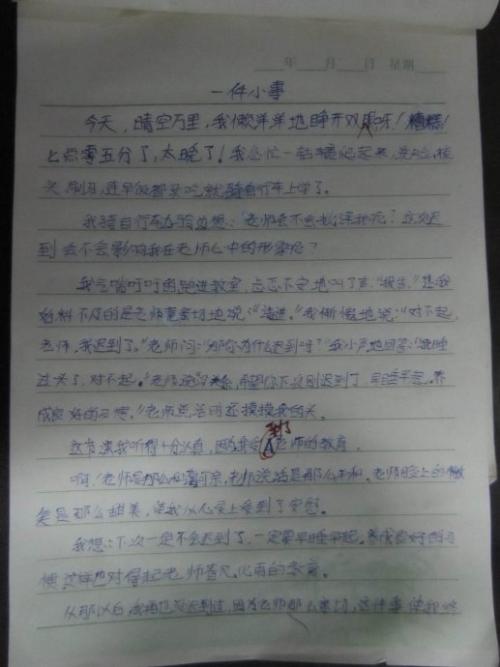 年 月 日 星期
一件小事
今天，晴空万里，我懒洋洋地睁开双眼呀！糟糕！
七点零五分了，太晚了！我急忙一骨碌起来，洗脸，梳
头，刷牙，连早饭都没吃就骑自行车上学了。
我骑自行车边骑边想：“老师会不会批评我呢？这次迟
到会不会影响我在老师心中的形象呢？
我气喘吁吁跑进教室，忐忑不安地叫了声“报告。”
料不及的是老师亲切地说：“请进。”我惭愧地说：“对不起，
老师，我迟到了。”老师问：“那你为什么迟到呀？”我小声地回答：“我睡
过头了，对不起。”老师说没关系，希望你下次别迟到了，早睡早起，养
成良好的习惯。”老师说总可还摸摸我的头
这节课我听得十分认真，因为我受到了老师的教育。
啊！老师是那么的，老师说话是那么，老师脸上的微
笑是那么甜美，让我从心灵上受到了安慰
我想：下次一定不会迟到了，一定要早睡早起。养成良好的习
惯这样对得起老师的教育。
从那以后，我再也没迟到过，因为老师那么亲切，这件事使我